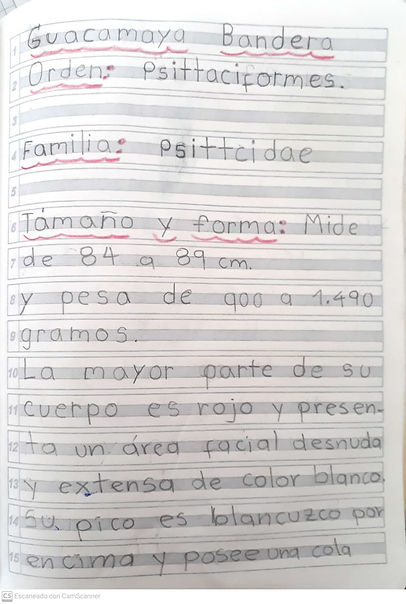 1 Guacamaya Bandera
2 Orden: Psittaciformes.
3
4 Familia: Psittcidae
5
6 Támaño y forma: Mide
7 de 84 a 89 cm.
8 y pesa de 900 a 1.490
9 gramos.
10 La mayor parte de su
11 cuerpo es rojo y presen-
12 ta un área facial desnuda
13 y extensa de color blanco.
14 Su pico es blancuzco por
15 encima y posee una cola
CS Escaneado con CamScanner